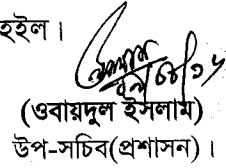 হইল।
(ওবায়দুল ইসলাম)
উপ-সচিব(প্রশাসন)।